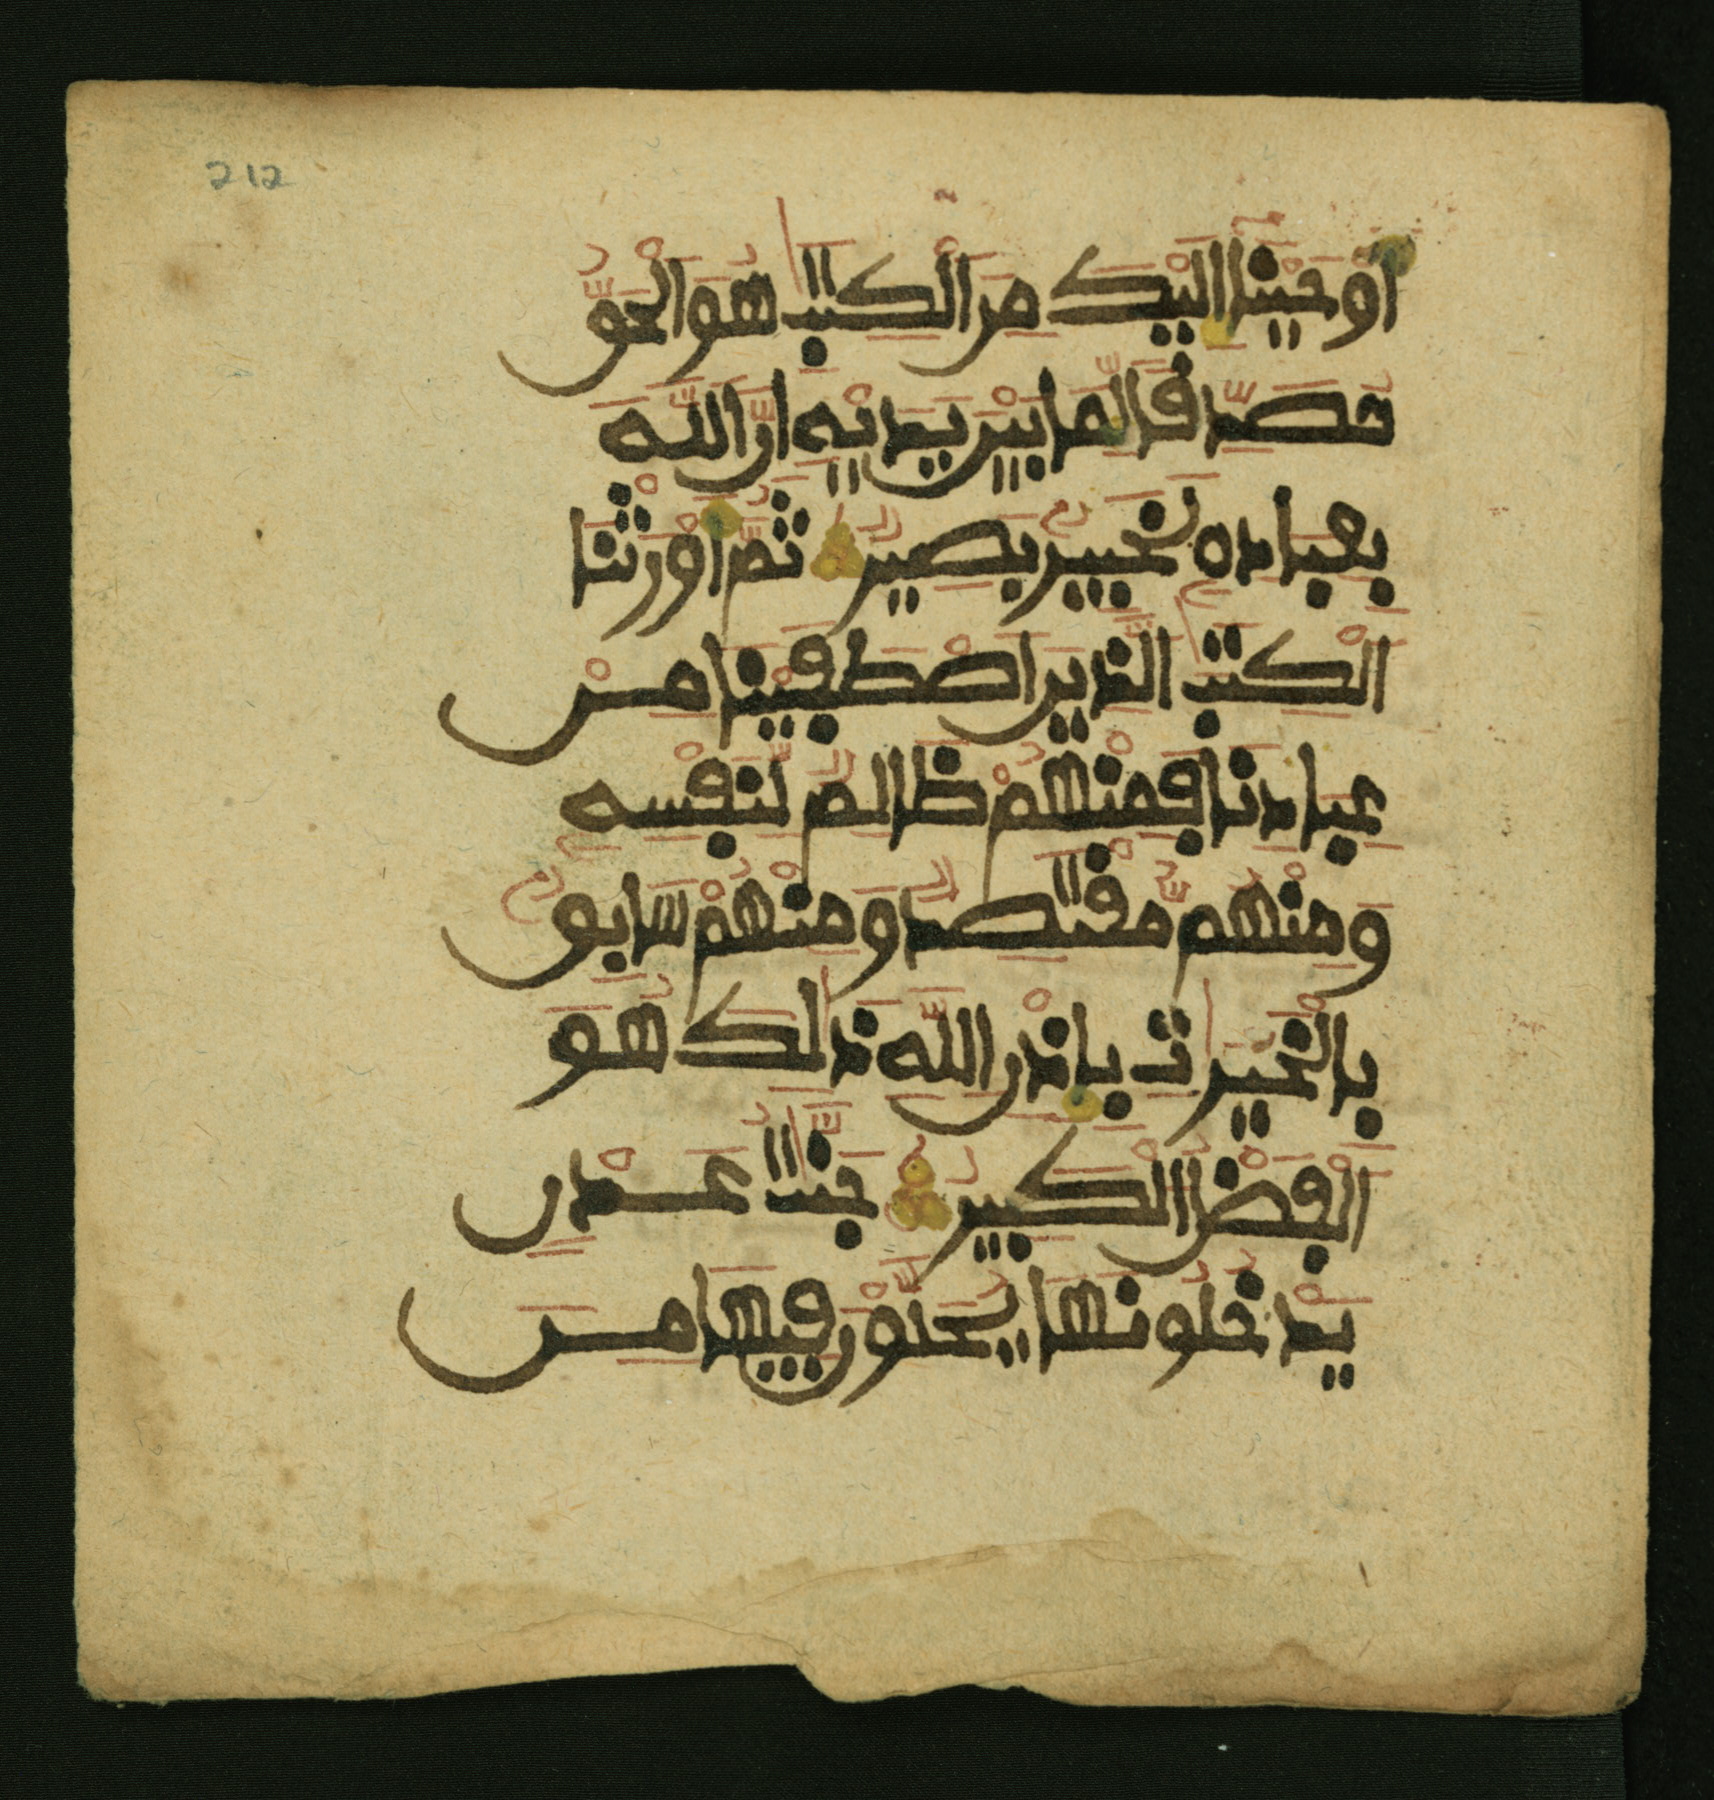 212
أَوْحَيْنَا إِلَيْكَ مِنَ الْكِتَٰبِ هُوَ الْحَقُّ
مُصَدِّقًا لِّمَا بَيْنَ يَدَيْهِ إِنَّ اللَّهَ
بِعِبَادِهِ لَخَبِيرٌ بَصِيرٌ ثُمَّ أَوْرَثْنَا
الْكِتَٰبَ الَّذِينَ اصْطَفَيْنَا مِنْ
عِبَادِنَا فَمِنْهُمْ ظَالِمٌ لِّنَفْسِهِ
وَمِنْهُم مُّقْتَصِدٌ وَمِنْهُمْ سَابِقٌ
بِالْخَيْرَٰتِ بِإِذْنِ اللَّهِ ذَٰلِكَ هُوَ
الْفَضْلُ الْكَبِيرُ جَنَّٰتُ عَدْنٍ
يَدْخُلُونَهَا يُحَلَّوْنَ فِيهَا مِنْ